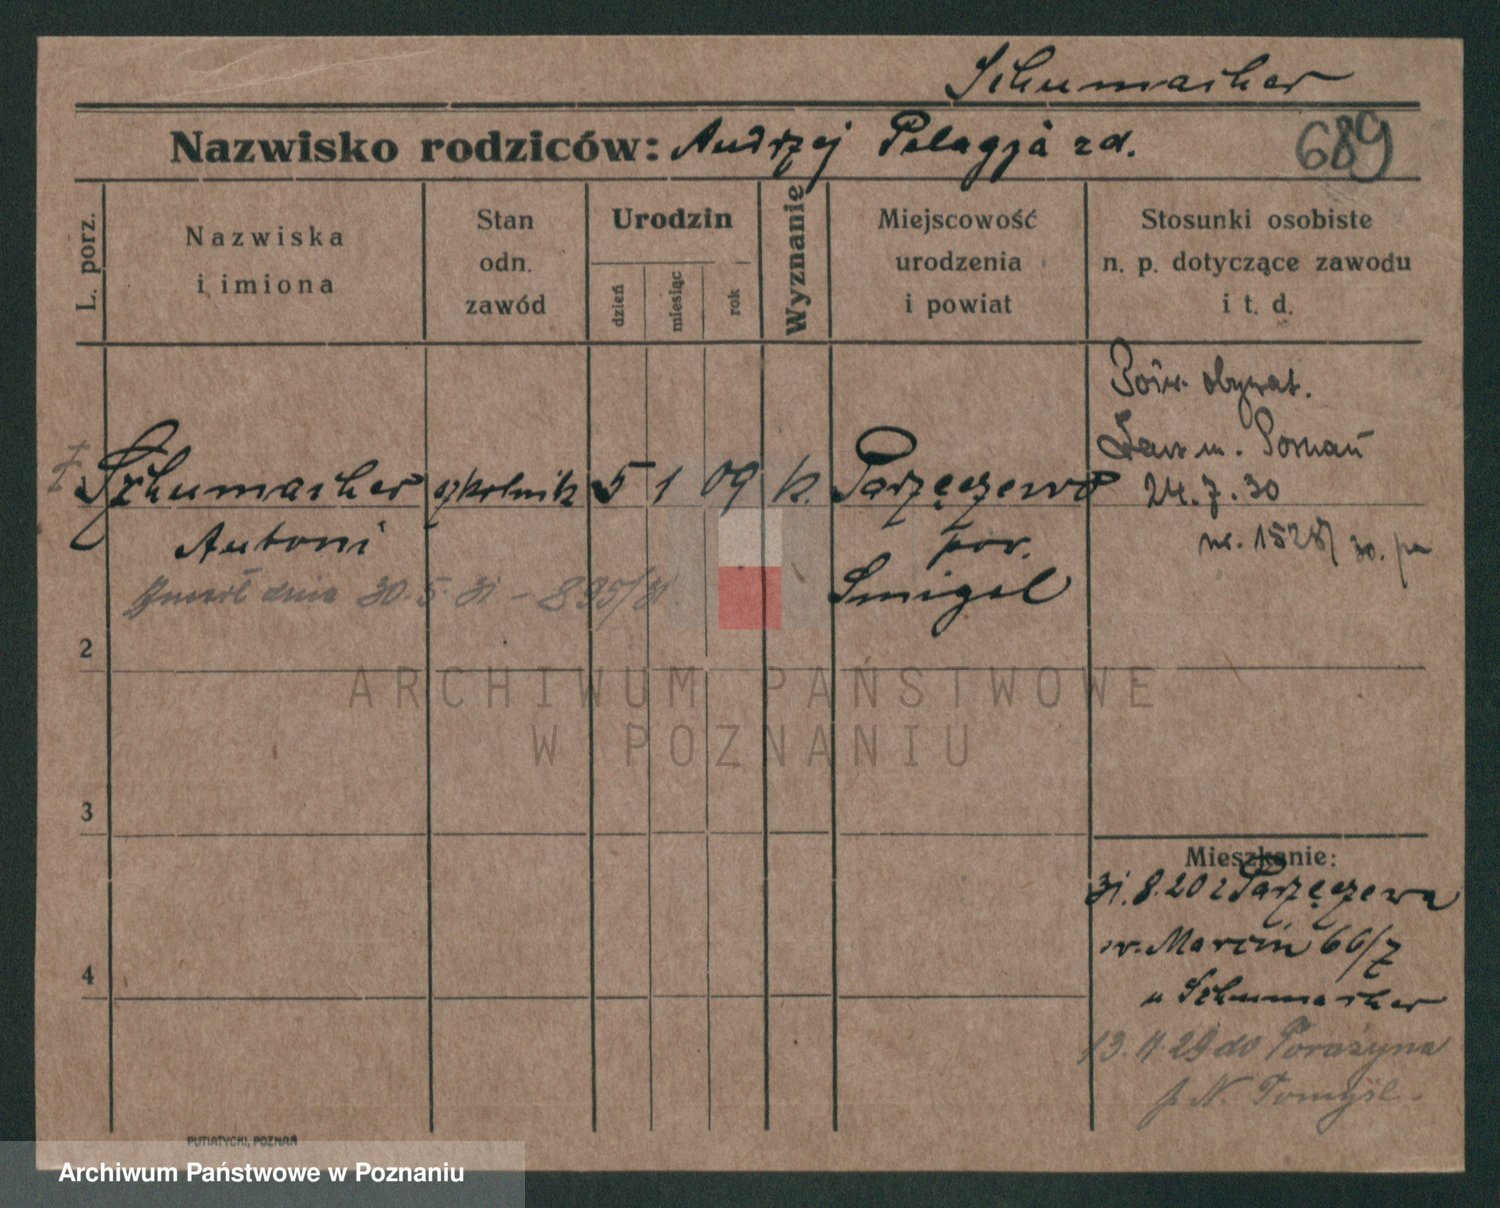 Schumacher
Nazwisko rodziców: Andrzej Pelagja zd.
689
L. porz.
Nazwiska
i imiona
Stan
odn.
zawód
Urodzin
dzień
miesiąc
rok
Wyznanie
Miejscowość
urodzenia
i powiat
Stosunki osobiste
n. p. dotyczące zawodu
i t. d.
Pośw. obywat.
m. Poznań
24.7.30
nr. 1528/30.
Schumacher szkolnik 5 1 09 k. Parzęczewo
Antoni
pow.
Smigel
Zmarł dnia 30.5.31 - 895/31.
2
3
4
Mieszkanie:
31.8.20 z Parzęczewa
w. Marcin 66/7
u Schumacher
13.11.29 do Porażyna
p. N. Tomyśl.
PUTIATYCKI, POZNAŃ
ARCHIWUM PAŃSTWOWE
W POZNANIU
Archiwum Państwowe w Poznaniu